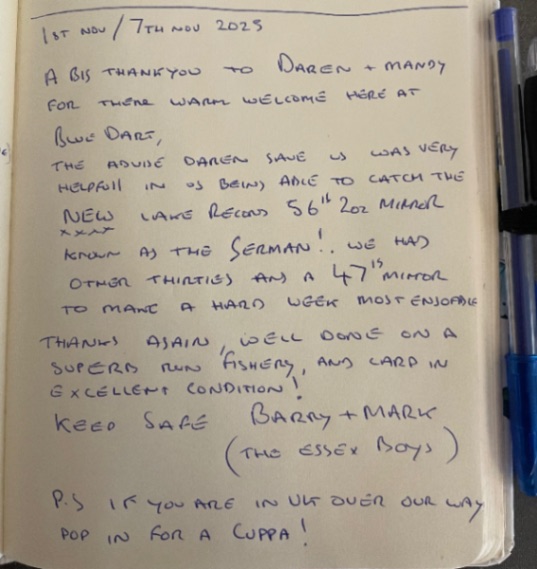 1ST NOV / 7TH NOV 2025
A BIG THANKYOU TO DAREN + MANDY
FOR THERE WARM WELCOME HERE AT
BLUE DART,
THE ADVISE DAREN GAVE US WAS VERY
HELPFULL IN US BEING ABLE TO CATCH THE
NEW LAKE RECORD 56lb 2oz MIRROR
xxxx
KNOWN AS THE GERMAN!. WE HAD
OTHER THIRTIES AND A 47lb MIRROR
TO MAKE A HARD WEEK MOST ENJOYABLE
THANKS AGAIN, WELL DONE ON A
SUPERB RUN FISHERY, AND CARP IN
EXCELLENT CONDITION!
KEEP SAFE BARRY + MARK
(THE ESSEX BOYS)
P.S IF YOU ARE IN UK OVER OUR WAY
POP IN FOR A CUPPA!